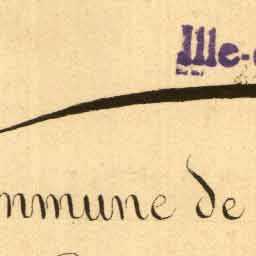 Ille-
mmune de